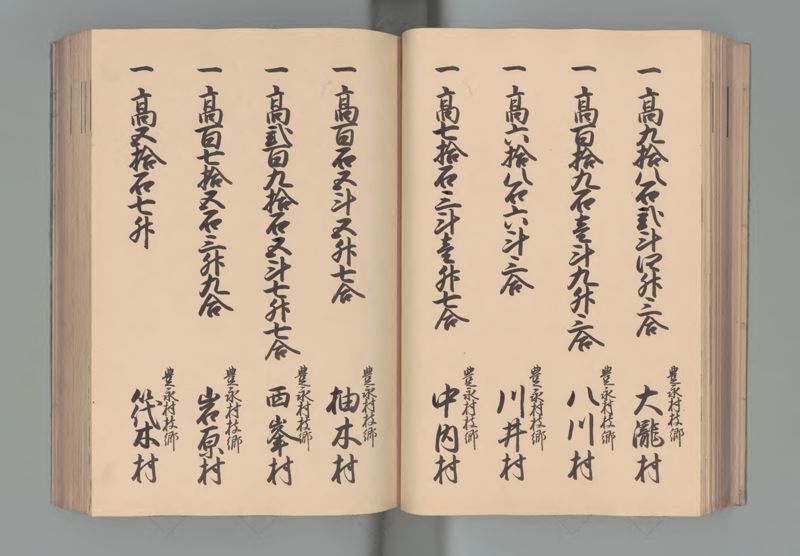 一 高九拾八石弐斗四升三合
豊永村枝郷
大瀧村
一 高百拾九石壱斗九升三合
豊永村枝郷
八川村
一 高六拾八石六斗三合
豊永村枝郷
川井村
一 高七拾石三斗壱升七合
豊永村枝郷
中内村
一 高百石五斗五升七合
豊永村枝郷
柚木村
一 高弐百九拾石五斗七升七合
豊永村枝郷
西峯村
一 高百七拾五石三升九合
豊永村枝郷
岩原村
一 高五拾石七升
筏木村